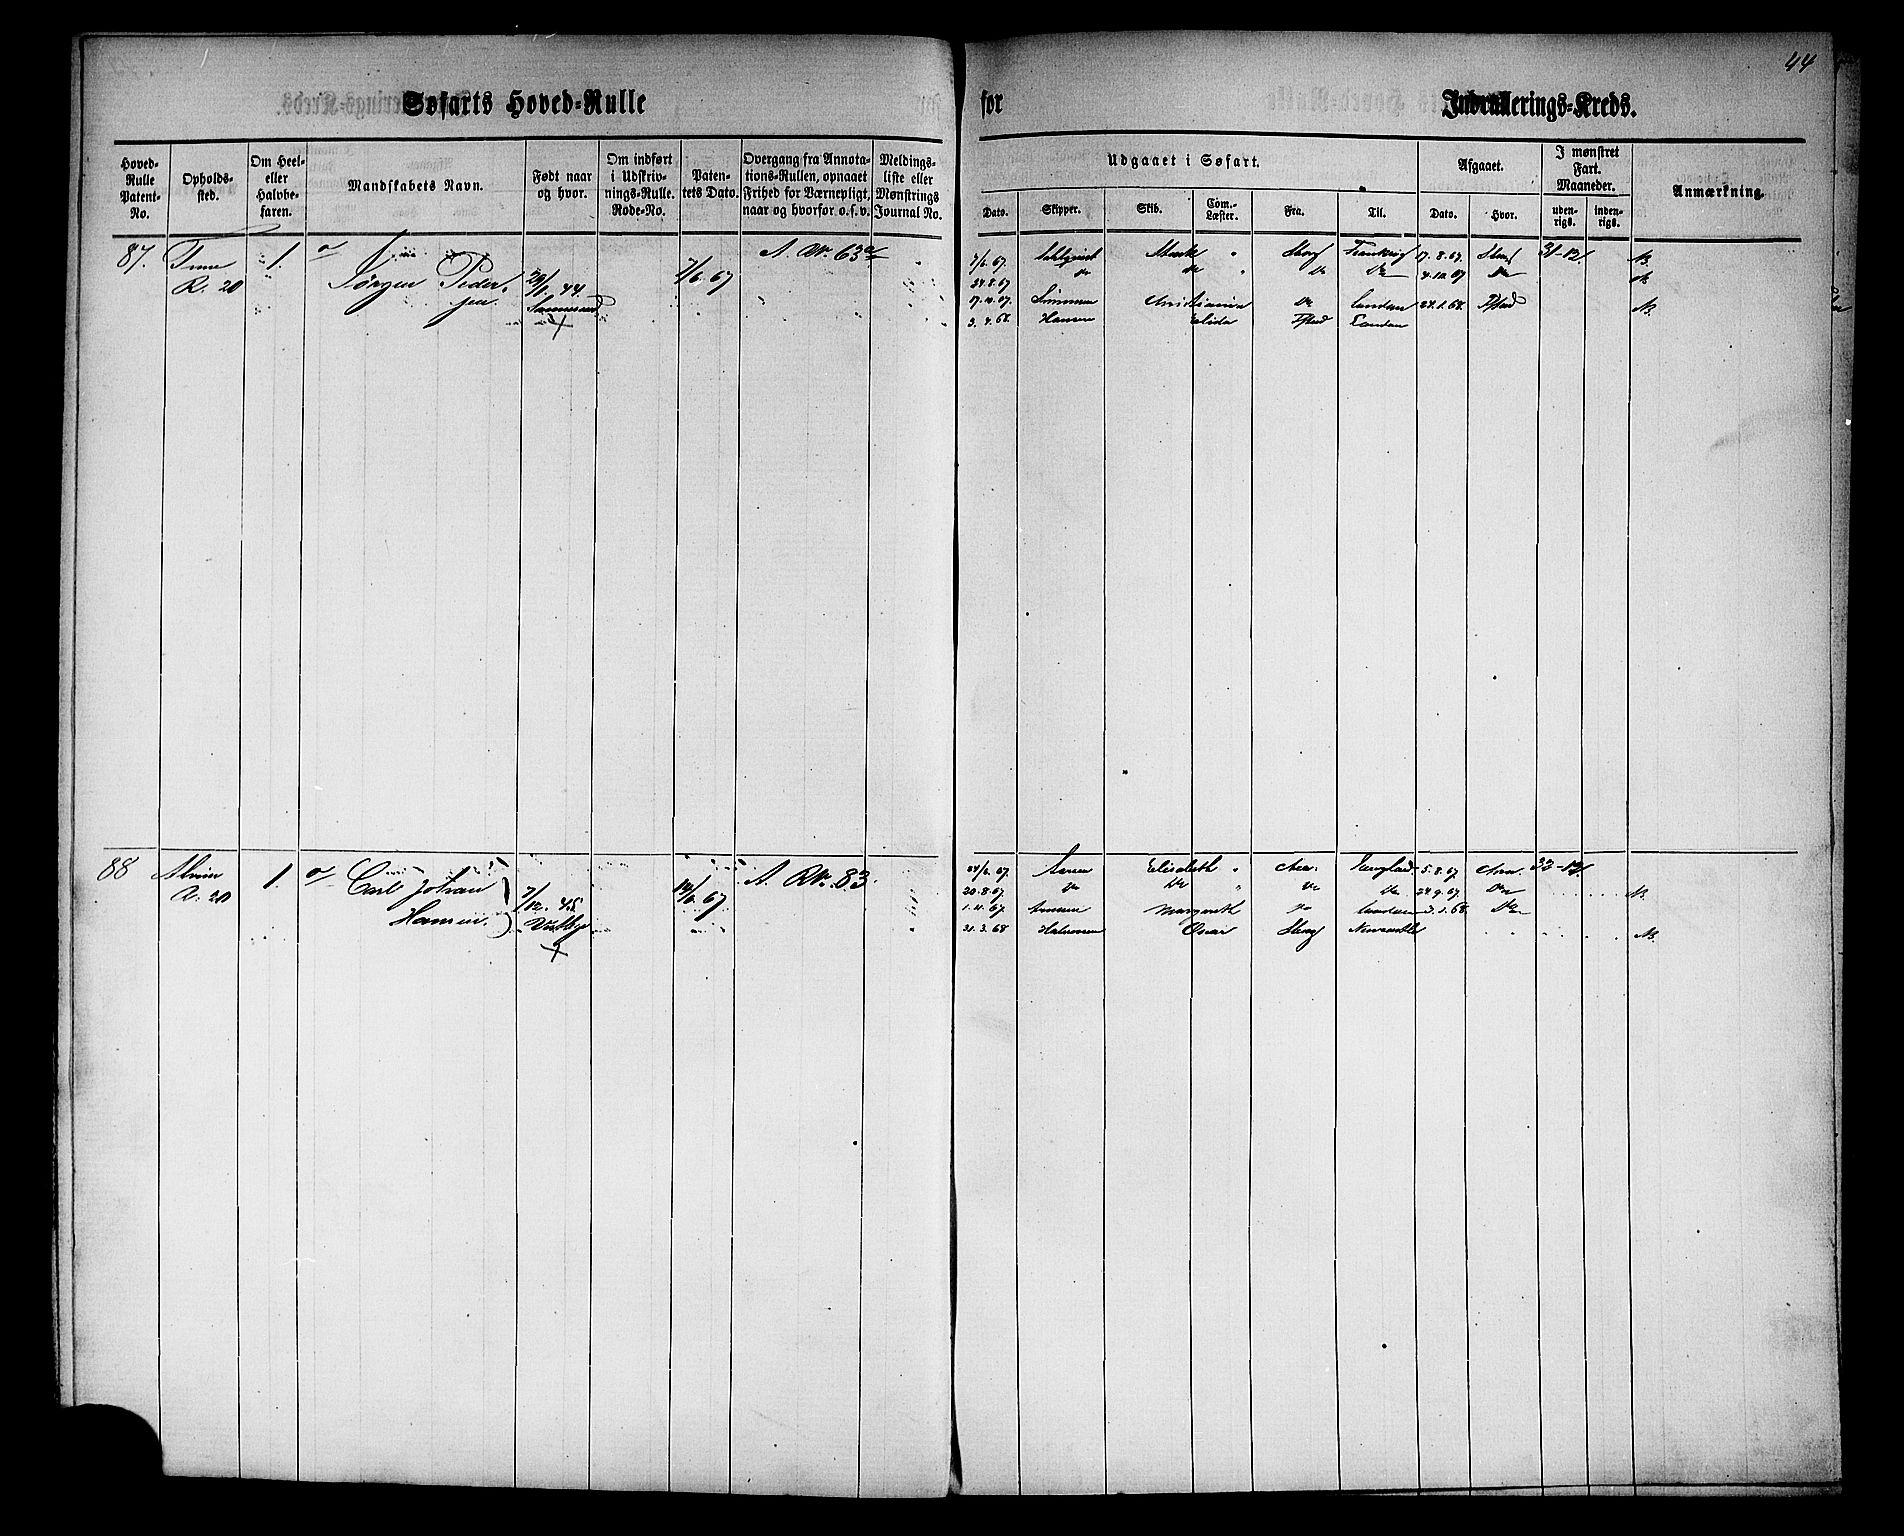 44
Søfarts Hoved-Rulle for Indrullerings-Kreds.
Hoved-Rulle Patent-No.
Opholdssted.
Om Heel- eller Halvbefaren.
Mandskabets Navn.
Født naar og hvor.
Om indført i Udskrivnings-Rulle. Rode-No.
Patentets Dato.
Overgang fra Annotations-Rullen, opnaaet Frihed for Værnepligt, naar og hvorfor o.s.v.
Meldingsliste eller Mønstrings Journal No.
Udgaaet i Søfart.
Afgaaet.
I mønstret Fart. Maaneder.
Anmærkning.
Dato. Skipper. Skib. Com.-Læster. Fra. Til. Dato. Hvor. udenrigs. indenrigs.
87. Tune 1. Jørgen Peder- A. No. 63
R. 20 sen 44 7/6 67
7/6 67 Frankrig 17.8.67 31-12
24.8.67 Do Do Do Do 4.10.67 Do
17.10.67 Christiania Do London 24.1.68
3.4.68 Hansen Elida London
88 1. Carl Johan A. No. 83.
R. 20 Hansen. 7/12 45 14/6 67
Vestby
67 Elisabeth England 5.8.67 32-12
20.8.67 Do Do Do Do 24.9.67 Do
1.11.67 Margareth Do London 3.1.68 Do
21.3.68 Halvorsen Oscar Newcastle